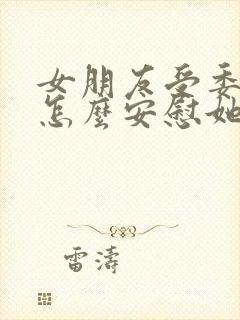 女朋友受委
怎麼安慰她
雷濤